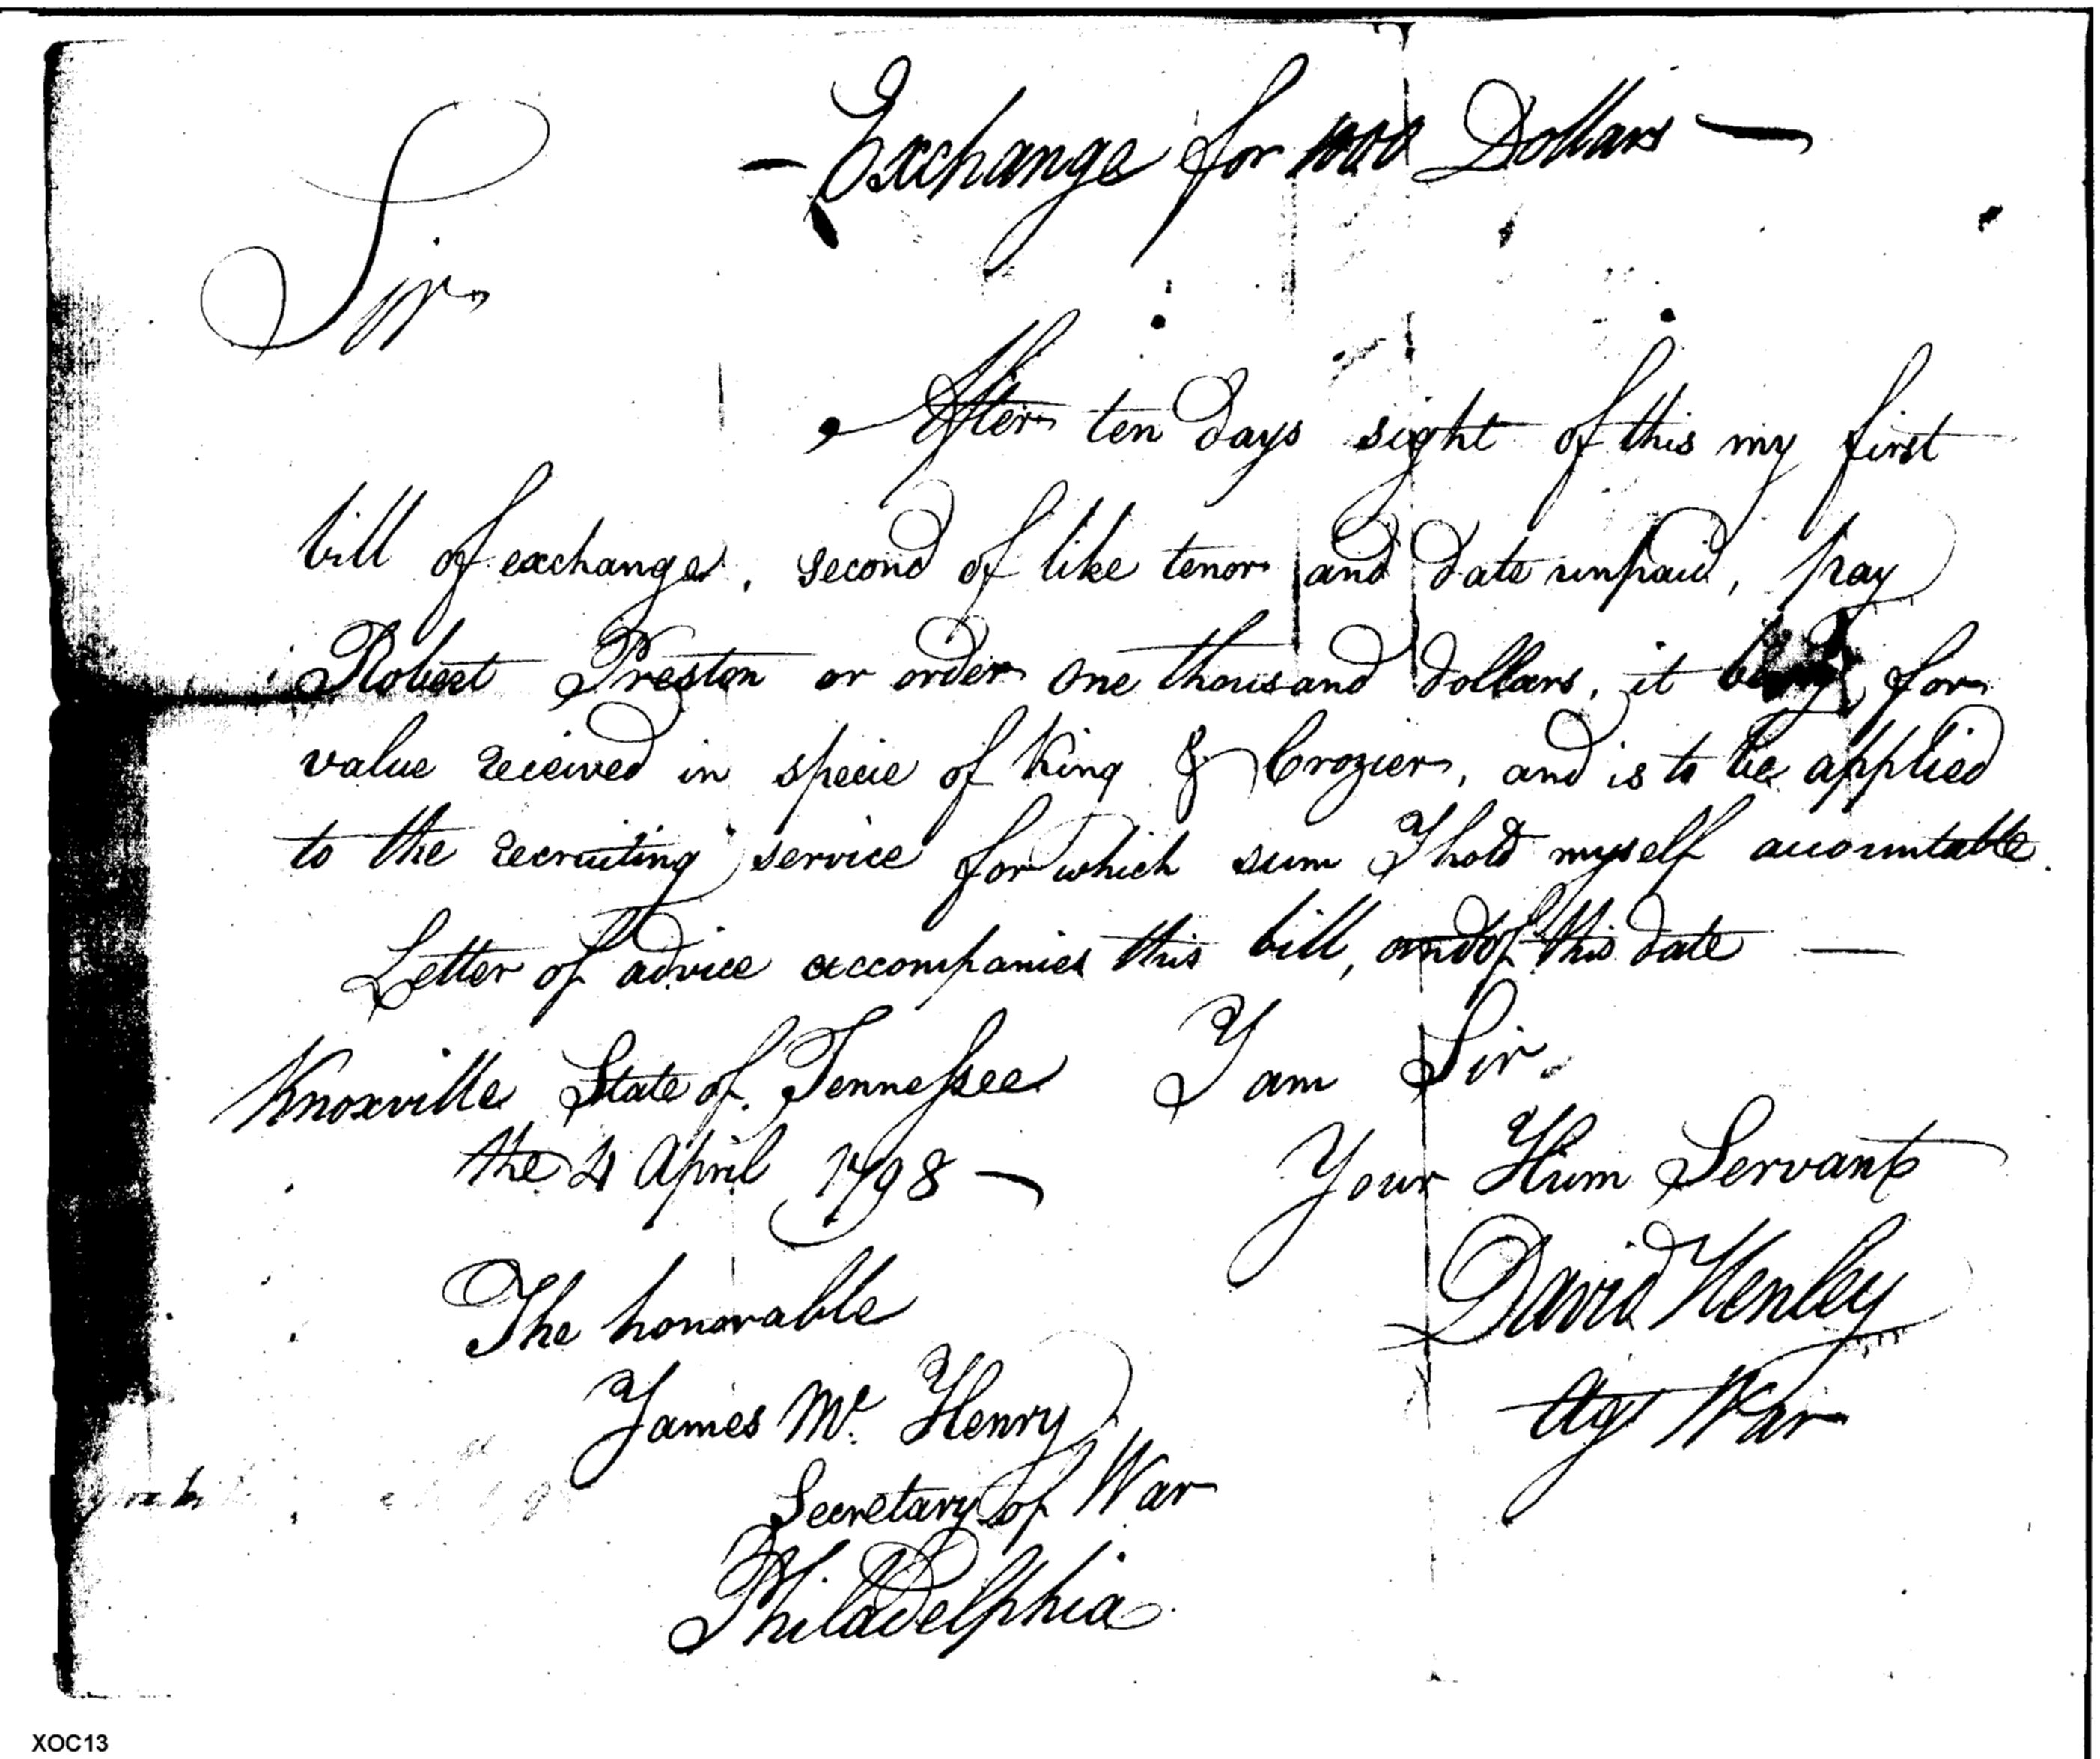 — Exchange for 1000 Dollars —
Sir
After ten days sight of this my first
bill of exchange, second of like tenor and date unpaid, pay
Robert Preston or order one thousand dollars, it being for
value received in specie of King & Crozier, and is to be applied
to the recruiting service for which sum I hold myself accountable.
Letter of advice accompanies this bill, and of this date —
Knoxville State of Tennessee I am Sir
the 4 April 1798 — Your Hum Servant
The honorable David Henley
James Mc Henry Agt War
Secretary of War
Philadelphia
XOC13